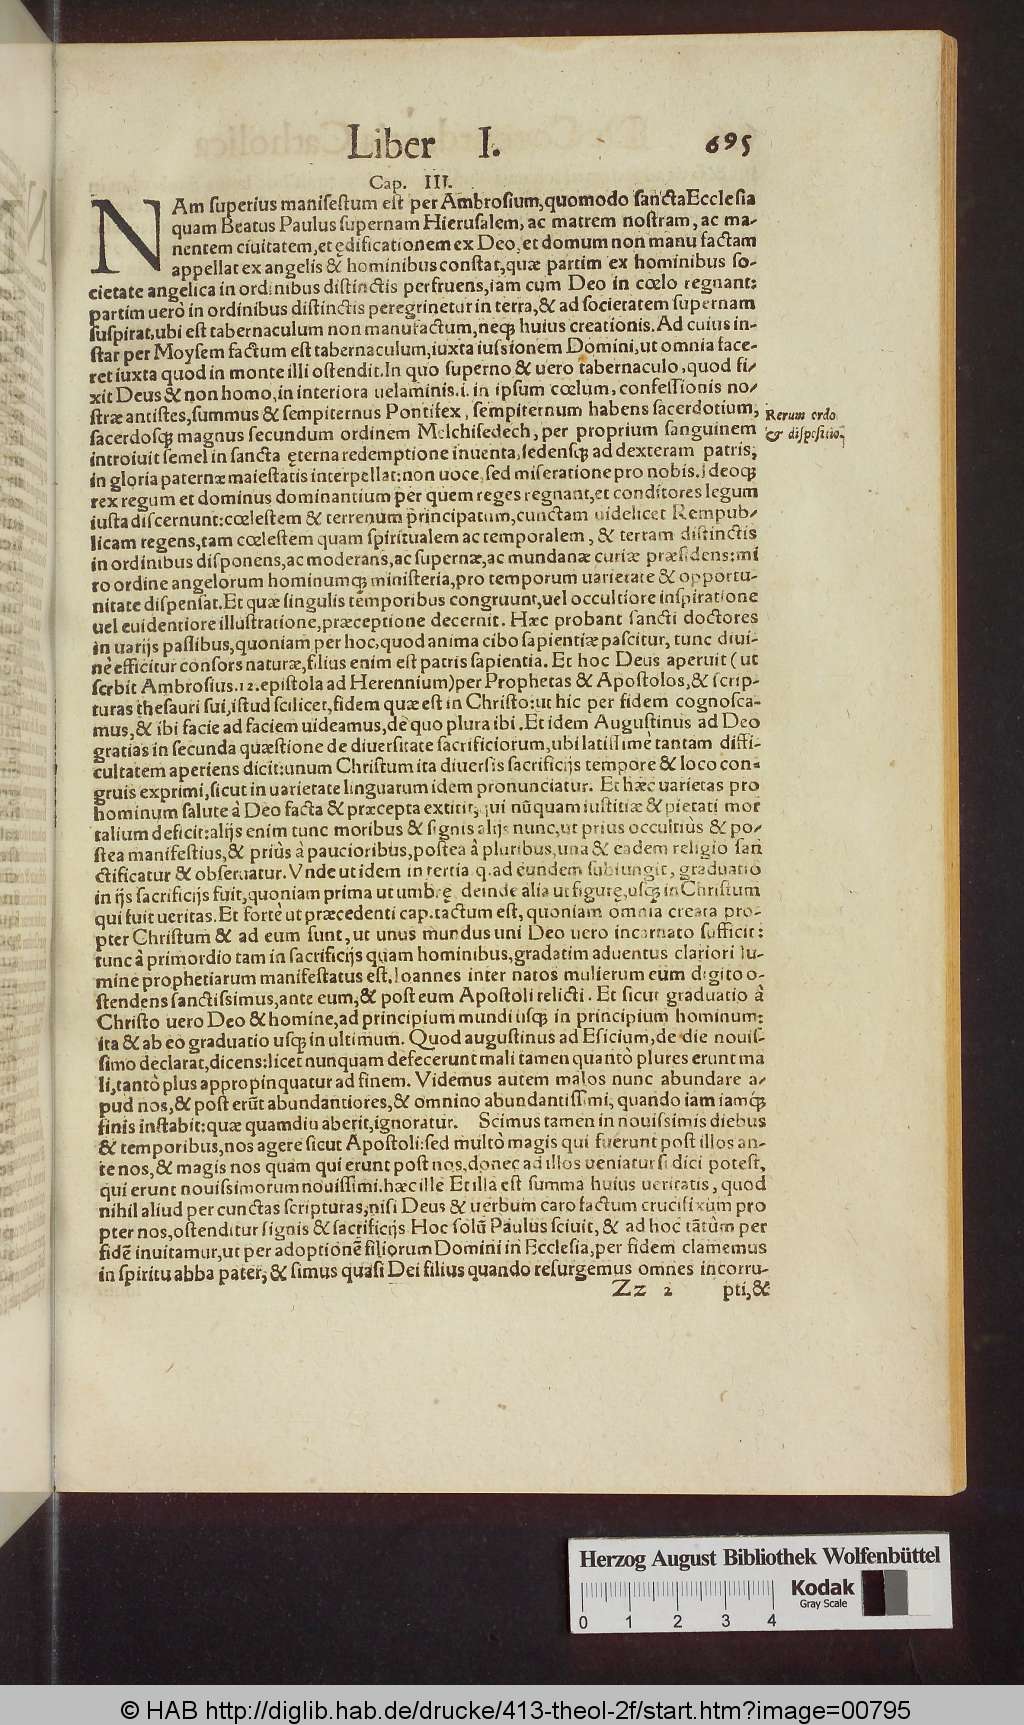 Liber I. 695
Cap. III.
NAm superius manifestum est per Ambrosium, quomodo sancta Ecclesia
quam Beatus Paulus supernam Hierusalem, ac matrem nostram, ac ma-
nentem ciuitatem, et ędificationem ex Deo, et domum non manu factam
appellat ex angelis & hominibus constat, quæ partim ex hominibus so-
cietate angelica in ordinibus distinctis perfruens, iam cum Deo in cœlo regnant:
partim uerò in ordinibus distinctis peregrinetur in terra, & ad societatem supernam
suspirat, ubi est tabernaculum non manufactum, neqꝫ huius creationis. Ad cuius in-
star per Moysem factum est tabernaculum, iuxta iussionem Domini, ut omnia face-
ret iuxta quod in monte illi ostendit. In quo superno & uero tabernaculo, quod fi-
xit Deus & non homo, in interiora uelaminis. i. in ipsum cœlum, confessionis no-
stræ antistes, summus & sempiternus Pontifex, sempiternum habens sacerdotium,
Rerum ordo
& dispositio.
sacerdosqꝫ magnus secundum ordinem Melchisedech, per proprium sanguinem
introiuit semel in sancta ęterna redemptione inuenta, sedensqꝫ ad dexteram patris,
in gloria paternæ maiestatis interpellat: non uoce, sed miseratione pro nobis. Ideoqꝫ
rex regum et dominus dominantium per quem reges regnant, et conditores legum
iusta discernunt: cœlestem & terrenum principatum, cunctam uidelicet Rempub-
licam regens, tam cœlestem quam spiritualem ac temporalem, & terram distinctis
in ordinibus disponens, ac moderans, ac supernæ, ac mundanæ curiæ præsidens: mi
ro ordine angelorum hominumqꝫ ministeria, pro temporum uarietate & opportu-
nitate dispensat. Et quæ singulis temporibus congruunt, uel occultiore inspiratione
uel euidentiore illustratione, præceptione decernit. Hæc probant sancti doctores
in uarijs passibus, quoniam per hoc, quod anima cibo sapientiæ pascitur, tunc diui-
nè efficitur consors naturæ, filius enim est patris sapientia. Et hoc Deus aperuit (ut
scrbit Ambrosius. 12. epistola ad Herennium) per Prophetas & Apostolos, & scrip-
turas thesauri sui, istud scilicet, fidem quæ est in Christo: ut hic per fidem cognosca-
mus, & ibi facie ad faciem uideamus, de quo plura ibi. Et idem Augustinus ad Deo
gratias in secunda quæstione de diuersitate sacrificiorum, ubi latissimè tantam diffi-
cultatem aperiens dicit: unum Christum ita diuersis sacrificijs tempore & loco con-
gruis exprimi, sicut in uarietate linguarum idem pronunciatur. Et hæc uarietas pro
hominum salute à Deo facta & præcepta extitit, qui nũquam iustitiæ & pietati mor
talium deficit: alijs enim tunc moribus & signis alijs nunc, ut prius occultiùs & po-
stea manifestius, & priùs à paucioribus, postea à pluribus, una & eadem religio san
ctificatur & obseruatur. Vnde ut idem in tertia q. ad eundem subiungit, graduatio
in ijs sacrificijs fuit, quoniam prima ut umbrę, deinde alia ut figurę, usqꝫ in Christum
qui fuit ueritas. Et fortè ut præcedenti cap. tactum est, quoniam omnia creata pro-
pter Christum & ad eum sunt, ut unus mundus uni Deo uero incarnato sufficit:
tunc à primordio tam in sacrificijs quam hominibus, gradatim aduentus clariori lu-
mine prophetiarum manifestatus est. Ioannes inter natos mulierum eum digito o-
stendens sanctissimus, ante eum, & post eum Apostoli relicti. Et sicut graduatio à
Christo uero Deo & homine, ad principium mundi usqꝫ in principium hominum:
ita & ab eo graduatio usqꝫ in ultimum. Quod augustinus ad Esicium, de die nouis-
simo declarat, dicens: licet nunquam defecerunt mali tamen quantò plures erunt ma
li, tantò plus appropinquatur ad finem. Videmus autem malos nunc abundare a-
pud nos, & post erũt abundantiores, & omnino abundantissimi, quando iam iamqꝫ
finis instabit: quæ quamdiu aberit, ignoratur. Scimus tamen in nouissimis diebus
& temporibus, nos agere sicut Apostoli: sed multò magis qui fuerunt post illos an-
te nos, & magis nos quam qui erunt post nos, donec ad illos ueniatur si dici potest,
qui erunt nouissimorum nouissimi. hæc ille Et illa est summa huius ueritatis, quod
nihil aliud per cunctas scripturas, nisi Deus & uerbum caro factum crucifixum pro
pter nos, ostenditur signis & sacrificijs Hoc solũ Paulus sciuit, & ad hoc tãtùm per
fidẽ inuitamur, ut per adoptionẽ filiorum Domini in Ecclesia, per fidem clamemus
in spiritu abba pater, & simus quasi Dei filius quando resurgemus omnes incorru-
Zz 2 pti, &
Herzog August Bibliothek Wolfenbüttel
Kodak
Gray Scale
0 1 2 3 4
© HAB http://diglib.hab.de/drucke/413-theol-2f/start.htm?image=00795